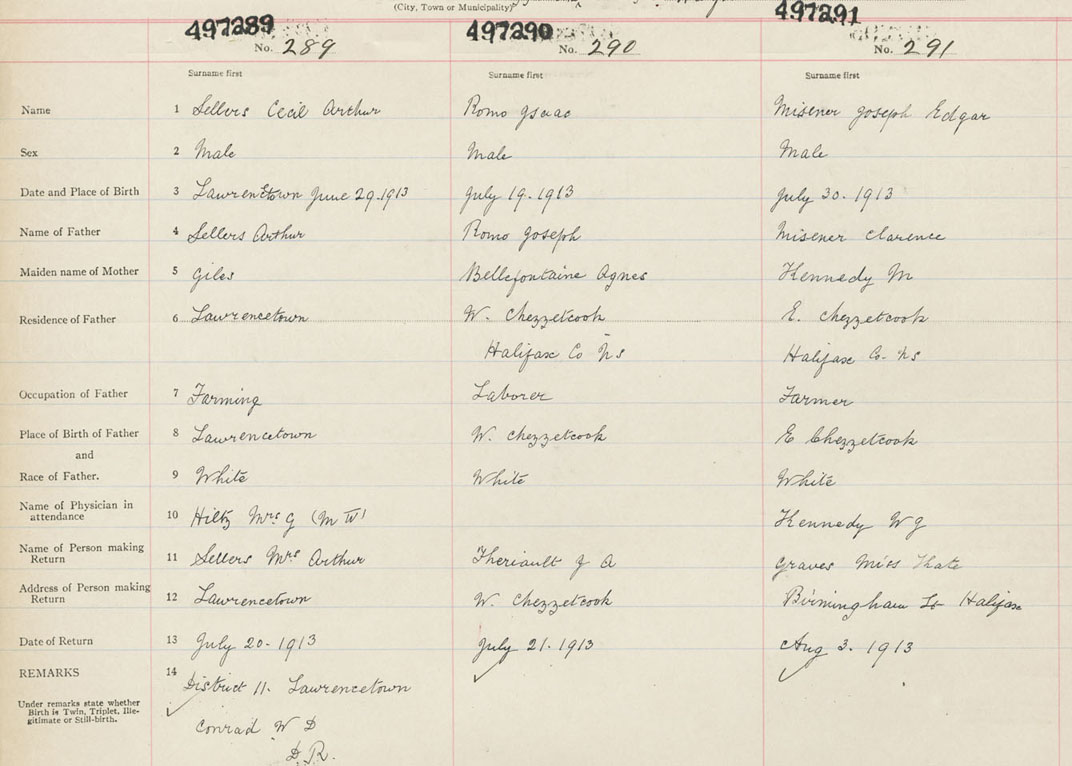 (City, Town or Municipality)
497289 497290 497291
No. 289 No. 290 No. 291
Surname first Surname first Surname first
Name 1 Sellers Cecil Arthur Romo Isaac Misener Joseph Edgar
Sex 2 Male Male Male
Date and Place of Birth 3 Lawrencetown June 29.1913 July 19.1913 July 30.1913
Name of Father 4 Sellers Arthur Romo Joseph Misener Clarence
Maiden name of Mother 5 Giles Bellefontaine Agnes Kennedy M
Residence of Father 6 Lawrencetown W. Chezzetcook E. Chezzetcook
Halifax Co N S Halifax Co. N S
Occupation of Father 7 Farming Laborer Farmer
Place of Birth of Father 8 Lawrencetown W. Chezzetcook E Chezzetcook
and
Race of Father. 9 White White White
Name of Physician in
attendance 10 Hiltz Mrs G (M W) Kennedy W G
Name of Person making
Return 11 Sellers Mrs Arthur Theriault J A Graves Miss Kate
Address of Person making
Return 12 Lawrencetown W. Chezzetcook Birmingham St Halifax
Date of Return 13 July 20.1913 July 21.1913 Aug 3.1913
REMARKS 14 District 11. Lawrencetown
Under remarks state whether
Birth is Twin, Triplet, Ille-
gitimate or Still-birth.
Conrad W D
D.R.